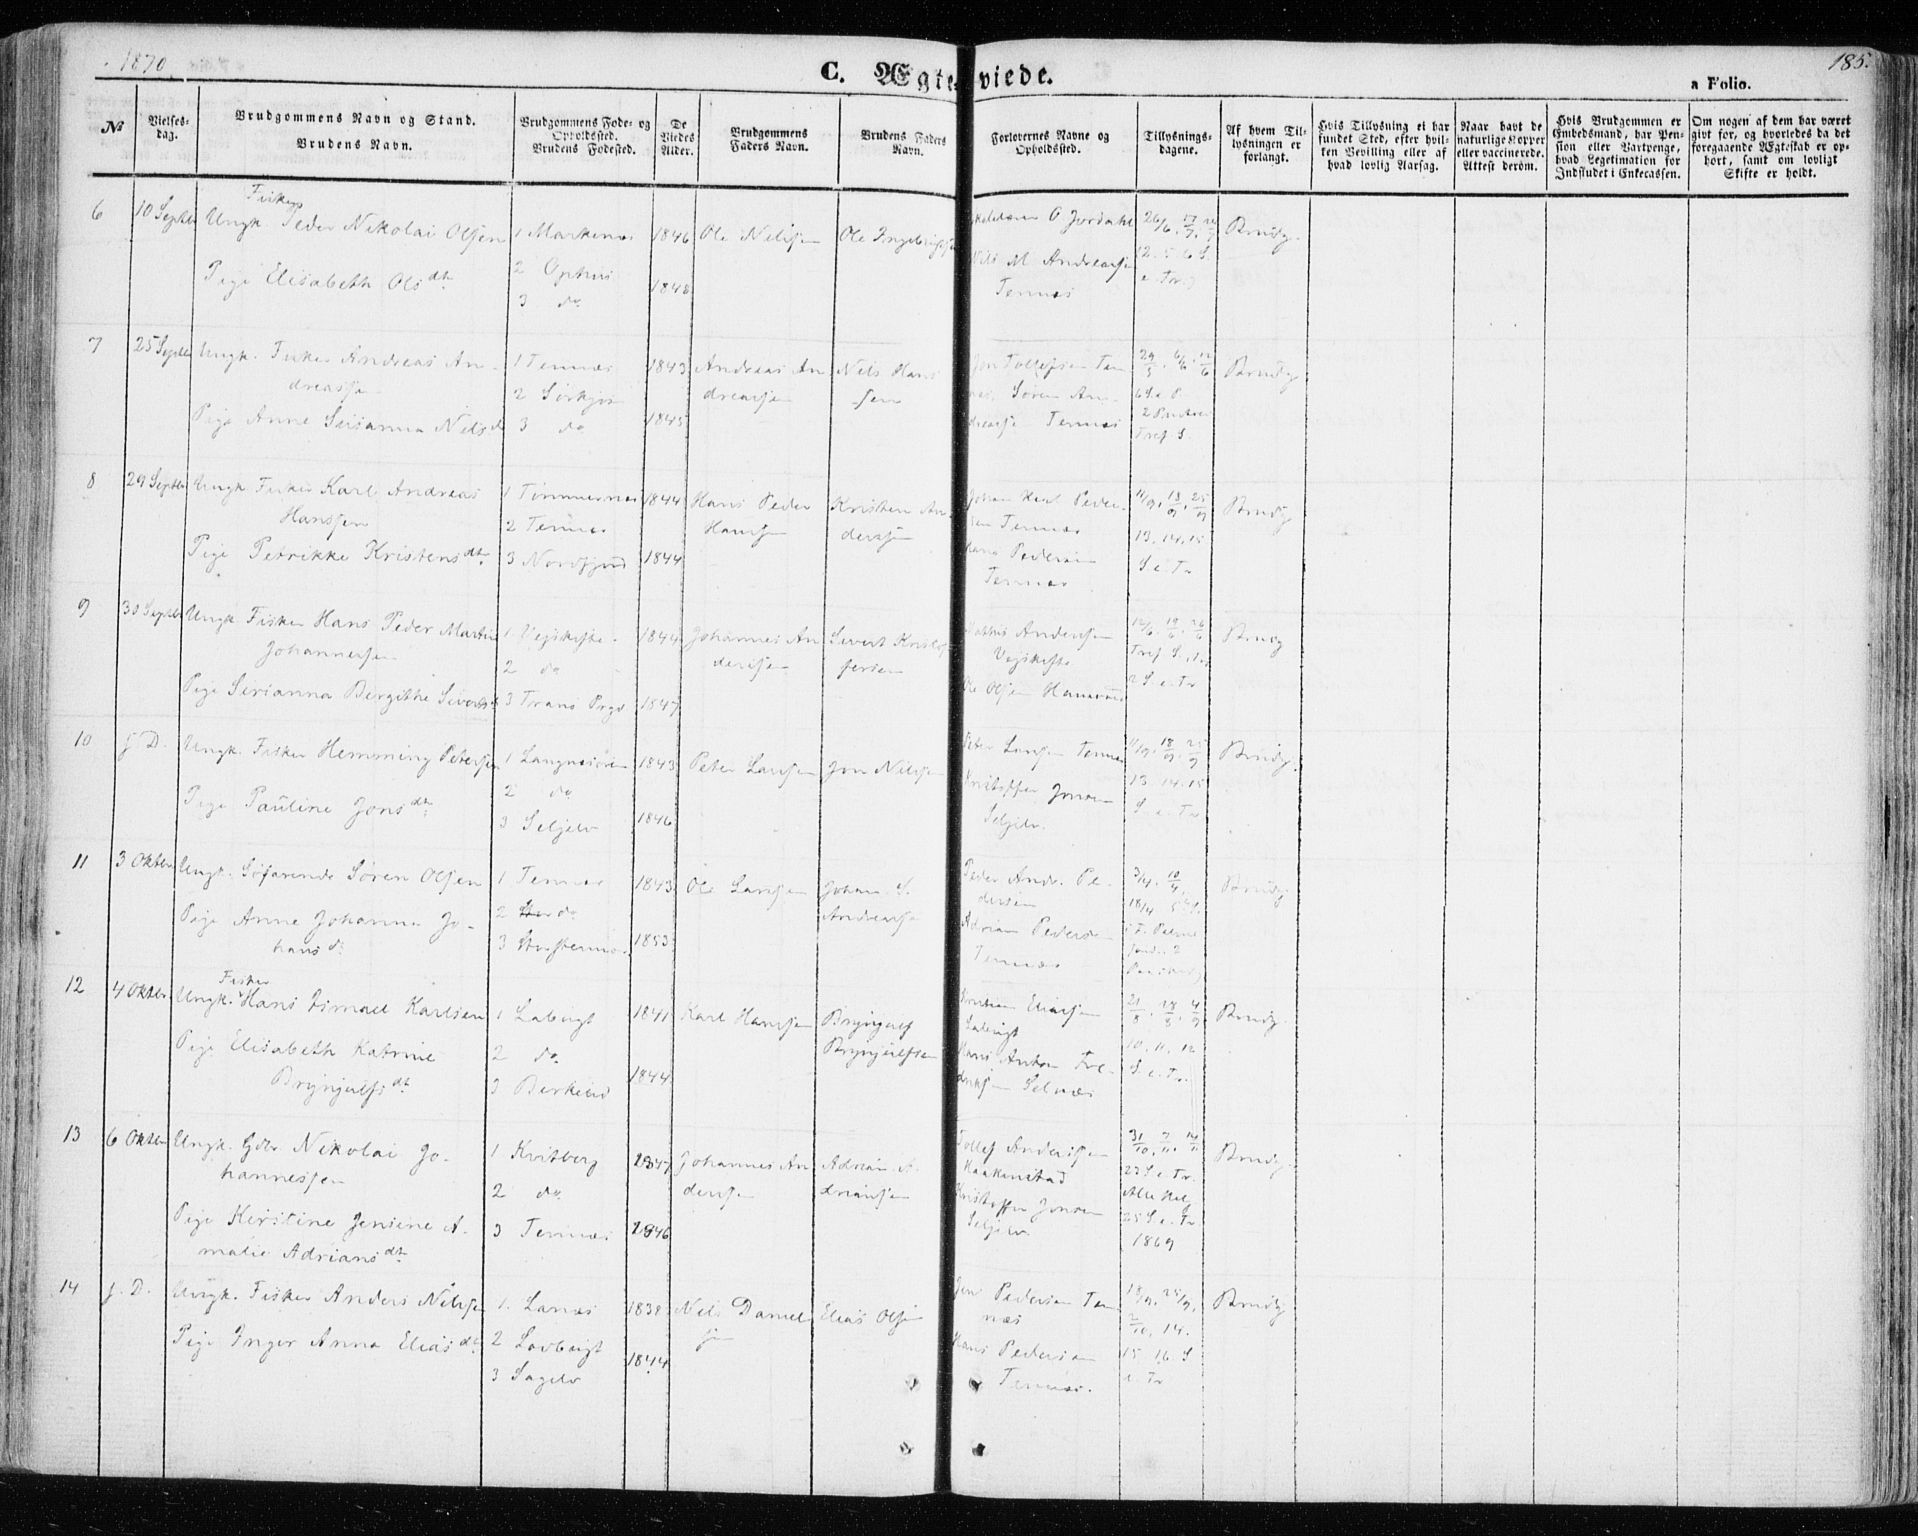 1870
185.
C. Ægteviede.
a Folio.
No
Vielses-
dag.
Brudgommens Navn og Stand.
Brudens Navn.
Brudgommens Føde- og
Opholdssted.
Brudens Fødested.
De
Viedes
Alder.
Brudgommens
Faders Navn.
Brudens Faders
Navn.
Forlovernes Navne og
Opholdssted.
Tillysnings-
dagene.
Af hvem Til-
lysningen er
forlangt.
Hvis Tillysning ei har
fundet Sted, efter hvil-
ken Bevilling eller af
hvad lovlig Aarsag.
Naar havt de
naturlige Kopper
eller vaccinerede.
Attest derom.
Hvis Brudgommen er
Embedsmand, har Pen-
sion eller Vartpenge,
hvad Legitimation for
Indskudet i Enkecassen.
Om nogen af dem har været
givt før, og hvorledes da det
foregaaende Ægteskab er op-
hørt, samt om lovligt
Skifte er holdt.
6
10 Septbr
Fisker
Ungk. Peder Nikolai Olsen
Pige Elisabeth Olsdt.
1 Markenes
2 Ophus
3 do
1846
1848
Ole Nilsen
Ole Ingebrigtsen
O Jordahl
Nils M Andreassen
Tennes
26/6. 17/7.
12. 5. 6 S.
e. Tr.
Brudg.
7
25 Septbr
Ungk. Fisker Andreas An-
dreassen
Pige Anne Susanna Nilsd
1 Tennes
2 Sørkjos
3 do
1843
1845
Andreas An
dreasen
Nils Hans
sen
Jon Tollefsen Ten
nes, Søren An-
dreasen Tennes
29/5. 6/6. 12/6
6 S. e P.
Tref. S.
Brudg
8
29 Septbr
Ungk Fisker Karl Andreas
Hanssen
Pige Petrikke Kristensdt.
1 Tømmernes
2 Tennes
3 Nordfjord
1844
1844
Hans Peder
Hansen
Kristen An
dersen
Johan Karl Peder-
sen Tennes
Hans Pedersen
Tennes
11/9. 18/9. 25/9
13. 14. 15
S. e. Tr
Brudg
9
30 Septbr
Ungk Fisker Hans Peder Martin
Johannessen
Pige Serianna Bergithe Siverts
1 Vejskefte
2 do
3 Trans Prgd
1844
1847
Johannes An
dersen
Sivert Kristof
fersen
Mathis Andersen
Vejskefte
Ole Olsen
12/6. 19/6. 26/6
Tref S., Tr.
2 S. e. Tr
Brudg
10
s. D.
Ungk. Fisker Hemming Petersen
Pige Pauline Jonsdt.
1 Langnesøren
2 do
3 Seljelv
1843
1846
Peter Larsen
Jon Nilsen
Peter Larsen Tennes
Kristoffer Jonsen
Seljelv.
11/9. 18/9. 25/9
13. 14. 15
S. e. Tr
Brudg.
11
3 Oktbr
Ungk. Søfarende Søren Olsen
Pige Anne Johanna Jo-
hansd.
1 Tennes
2 do
3 Storstennes
1843
1853
Ole Larsen
Johan S.
Andreasen
Peder Andr. Pe-
dersen
Adrian Pedersen
Tennes
3/4. 10/4.
18/4
Brudg
12
4 Oktbr
Fisker
Ungk. Hans Ismael Karlsen
Pige Elisabeth Katrine
Brynjulfsdt
1 Labugt
2 do.
3 Berkeid
1841
1844
Karl Hansen
Brynjulf
Brynjulfsen
Kristian Eliassen
Labugt
Hans Anton Fre-
driksen Selnæs
21/8. 28/8. 4/9
10. 11. 12
S. e. Tr.
Brudg.
13
6 Oktbr
Ungk. Gdbr Nikolai Jo-
hannessen
Pige Kerstine Jensine A-
malie Adriansdt.
1 Kvitberg
2 do.
3 Tennes
1847
1846
Johannes An
dersen
Adrian A-
driansen
Tollef Anderssen
Haakonstad
Kristoffer Jonsen
Seljelv
31/10. 7/11. 14/11
23 S. e. Tr.
Alle Hel
25 S. e. Tr
1869
Brudg.
14
s. D.
Ungk. Fisker Anders Nilsen
Pige Inger Anna Eliasdt.
1. Lanes
2 Lavbugt
3 Sagelv
1838
1844
Nils Daniel
sen
Elias Olsen
Jon Pedersen Ten
næs
Hans Pedersen
Tennes.
18/9. 25/9.
2/10. 14.
15. 16. S
e. Tr
Brudg